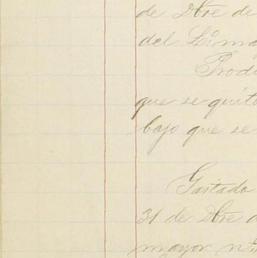 de Dbre de
del Lima
Prod
que se quito
bajo que se
Gastado
31 de Dbre d
mayor n